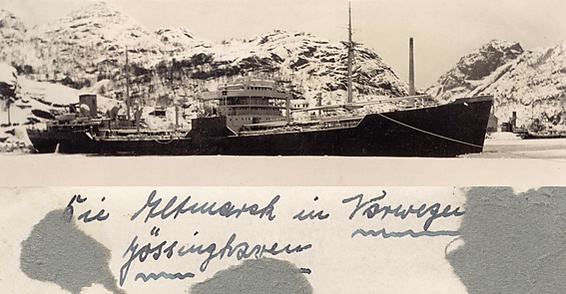 Die Altmarck in Norwegen
Jössinghaven